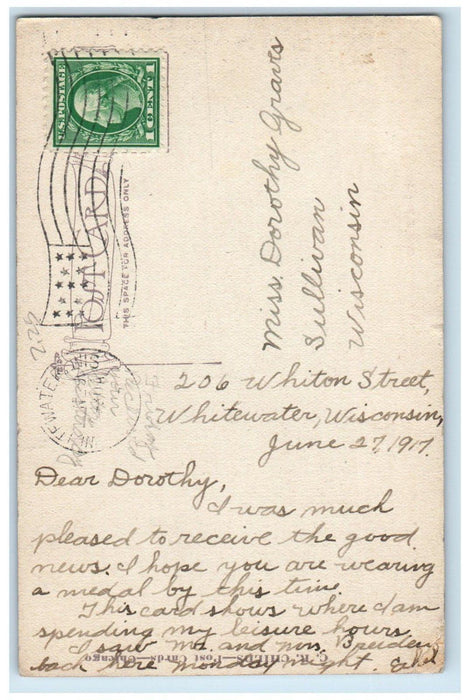 U.S. POSTAGE
1 CENT 1
POST CARD
THIS SPACE FOR ADDRESS ONLY
Miss. Dorothy Graves
Sullivan
Wisconsin
206 Whiton Street,
Whitewater, Wisconsin,
June 27, 1917.
Dear Dorothy,
I was much
pleased to receive the good
news. I hope you are wearing
a medal by this time.
This card shows where I am
spending my leisure hours.
I saw Mr. and Mrs.
back here Monday night. and
C. R. CHILDS—Post Cards—Chicago